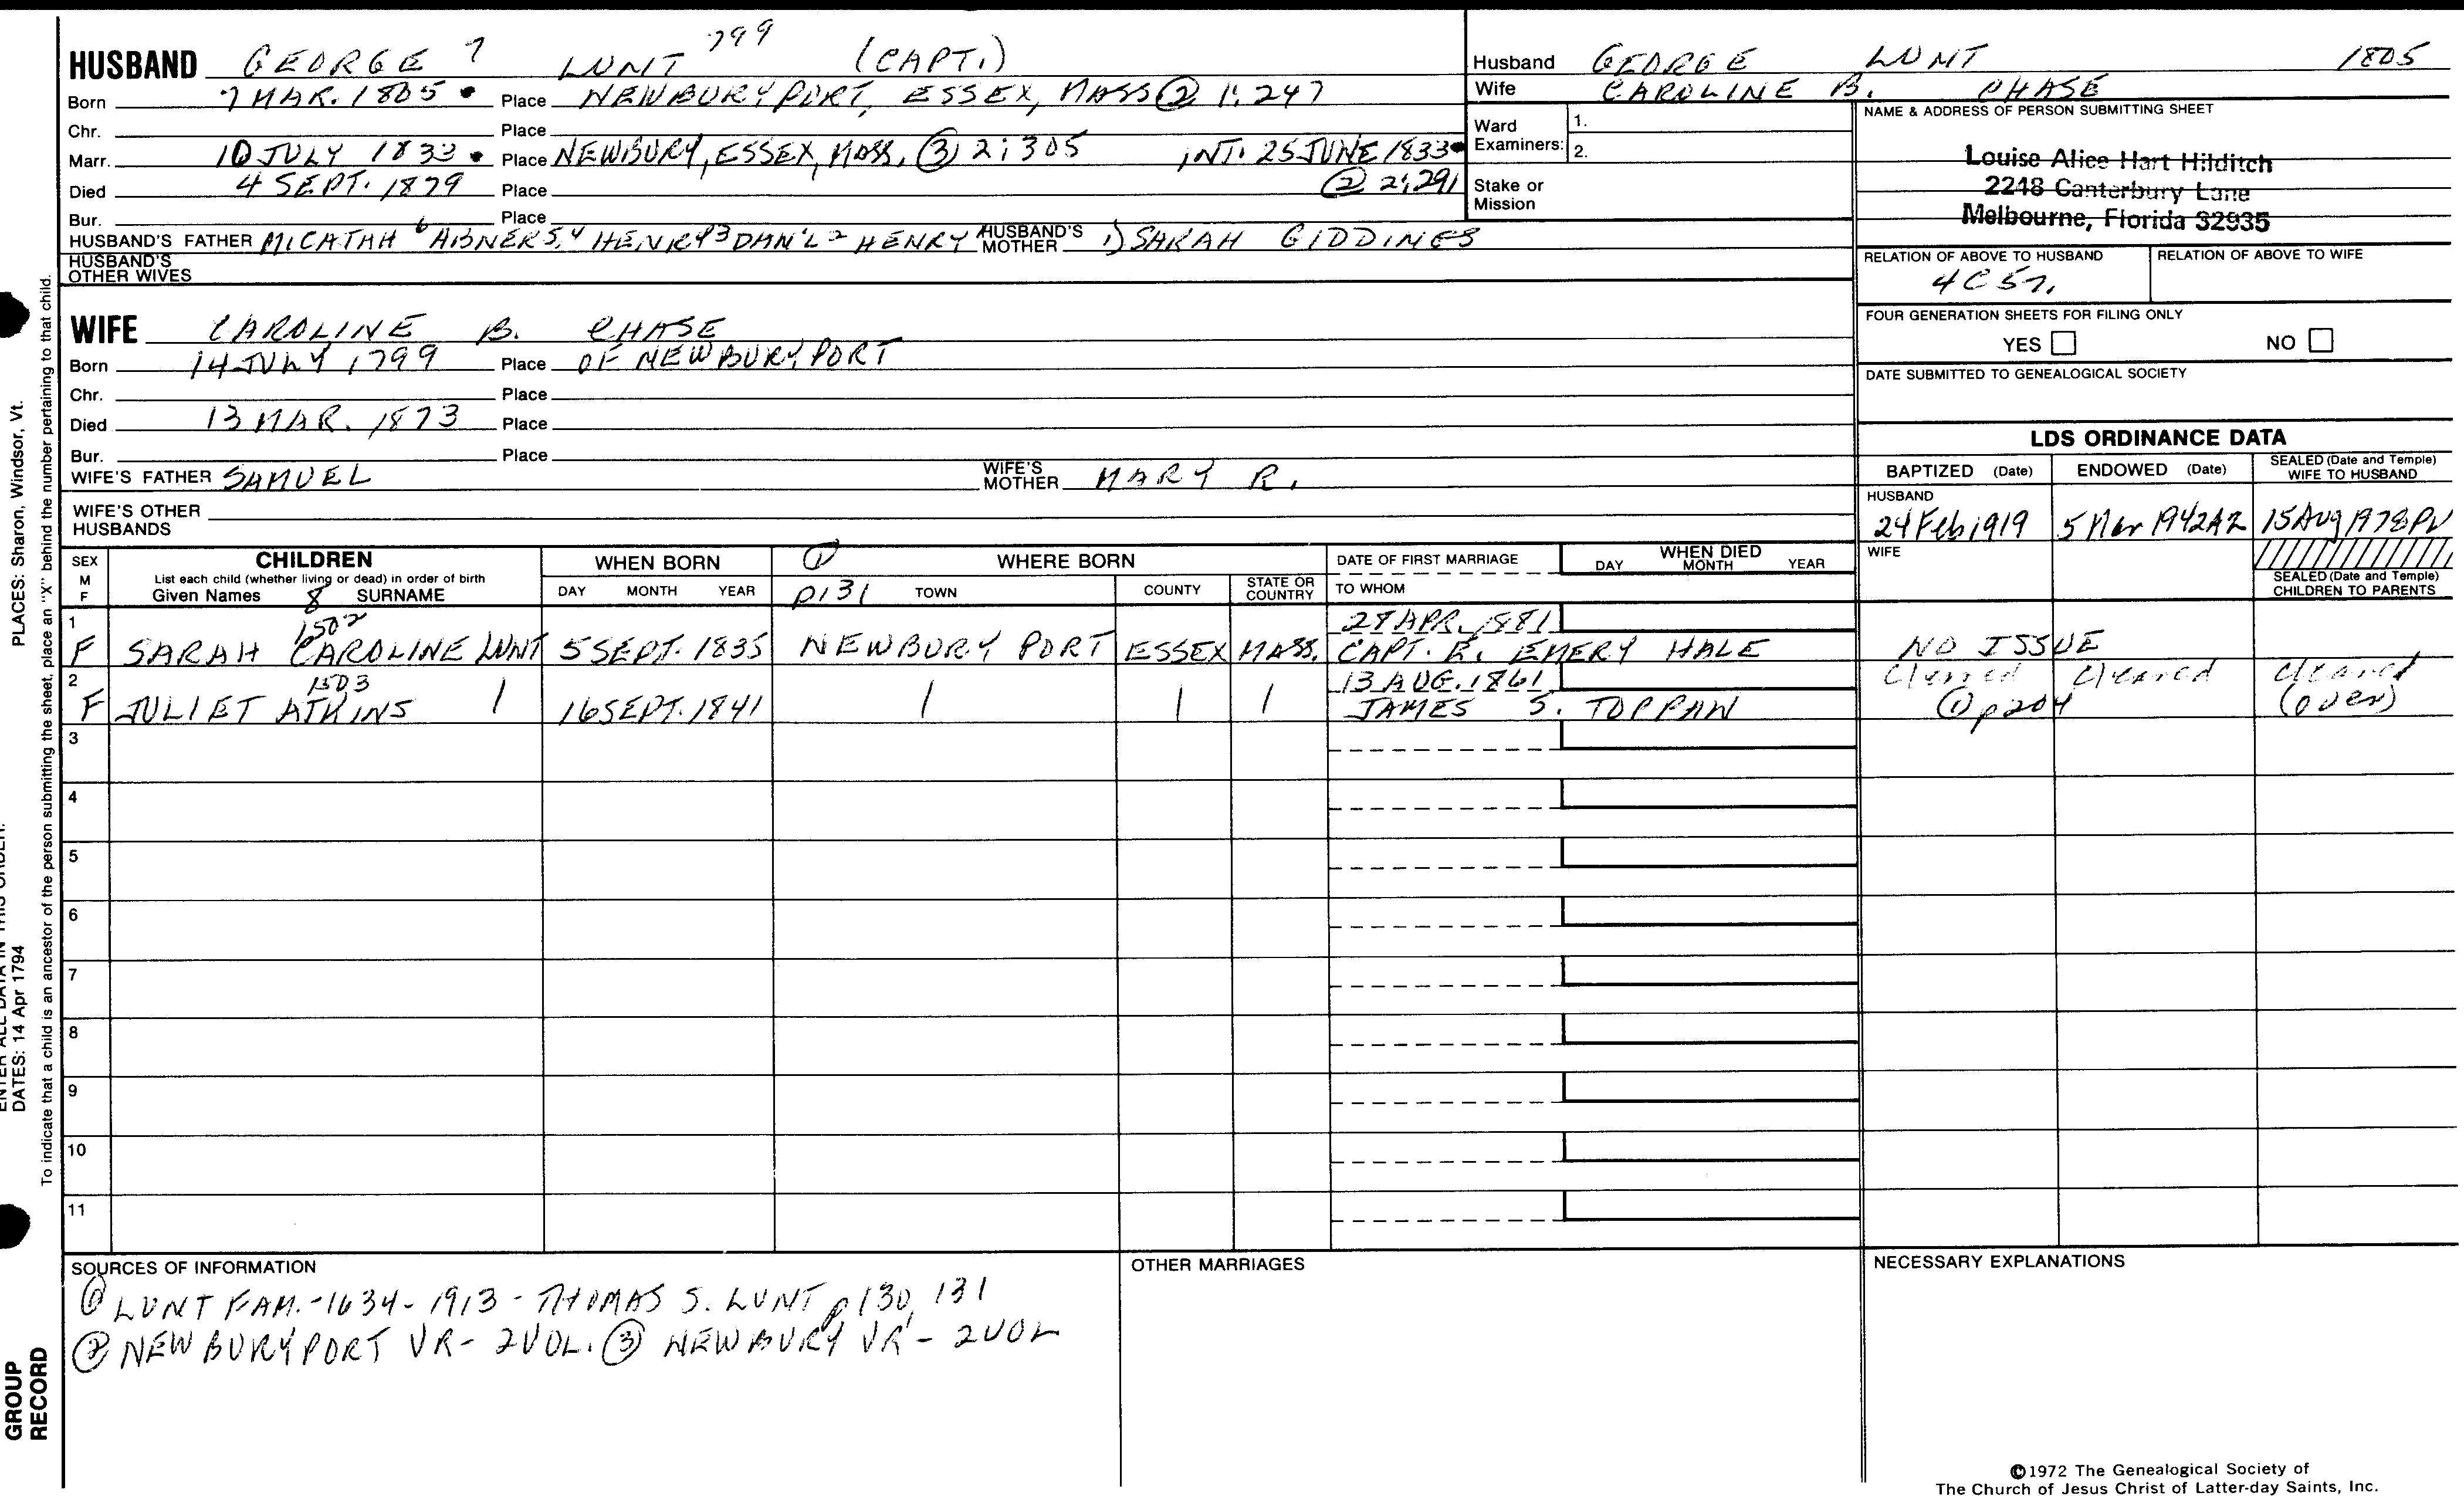 HUSBAND GEORGE 7 LUNT 799 (CAPT.)
Born 7 MAR. 1805 • Place NEWBURYPORT, ESSEX, MASS ② 1:247
Chr. Place
Marr. 10 JULY 1833 • Place NEWBURY, ESSEX, MASS. ③ 2:305 INT. 25 JUNE 1833 •
Died 4 SEPT. 1879 Place ② 2:291
Bur. Place
HUSBAND'S FATHER MICATAH 6 ABNER 5,4 HENRY 3 DAN'L 2 HENRY HUSBAND'S MOTHER 1) SARAH GIDDINGS
HUSBAND'S OTHER WIVES
Husband GEORGE LUNT 1805
Wife CAROLINE B. CHASE
Ward Examiners: 1.
2.
Stake or Mission
NAME & ADDRESS OF PERSON SUBMITTING SHEET
Louise Alice Hart Hilditch
2248 Canterbury Lane
Melbourne, Florida 32935
RELATION OF ABOVE TO HUSBAND RELATION OF ABOVE TO WIFE
4C5r.
FOUR GENERATION SHEETS FOR FILING ONLY
YES NO
DATE SUBMITTED TO GENEALOGICAL SOCIETY
WIFE CAROLINE B. CHASE
Born 14 JULY 1799 Place OF NEWBURYPORT
Chr. Place
Died 13 MAR. 1873 Place
Bur. Place
WIFE'S FATHER SAMUEL WIFE'S MOTHER MARY R.
WIFE'S OTHER HUSBANDS
LDS ORDINANCE DATA
BAPTIZED (Date) ENDOWED (Date) SEALED (Date and Temple) WIFE TO HUSBAND
HUSBAND
24 Feb 1919 5 Mar 1942AZ 15 Aug 1978PV
WIFE
SEALED (Date and Temple) CHILDREN TO PARENTS
SEX M F CHILDREN List each child (whether living or dead) in order of birth Given Names 8 SURNAME
WHEN BORN DAY MONTH YEAR
① p131 WHERE BORN TOWN COUNTY STATE OR COUNTRY
DATE OF FIRST MARRIAGE TO WHOM
WHEN DIED DAY MONTH YEAR
1 1502 28 APR. 1881
F SARAH CAROLINE LUNT 5 SEPT. 1835 NEWBURY PORT ESSEX MASS. CAPT. E. EMERY HALE NO ISSUE
2 1503 13 AUG. 1861 Cleared Cleared Cleared
F JULIET ATKINS | 16 SEPT. 1841 | | | JAMES S. TOPPAN ① p204 (over)
3
4
5
6
7
8
9
10
11
SOURCES OF INFORMATION
① LUNT FAM. - 1634 - 1913 - THOMAS S. LUNT p130, 131
② NEWBURYPORT VR - 2 VOL. ③ NEWBURY VR - 2 VOL
OTHER MARRIAGES
NECESSARY EXPLANATIONS
©1972 The Genealogical Society of
The Church of Jesus Christ of Latter-day Saints, Inc.
To indicate that a child is an ancestor of the person submitting the sheet, place an "X" behind the number pertaining to that child.
PLACES: Sharon, Windsor, Vt.
DATES: 14 Apr 1794
GROUP
RECORD